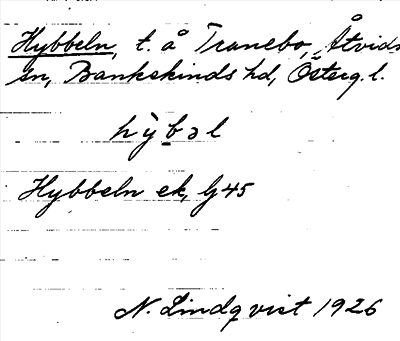 Hybbeln, t. å Tranebo, Åtvids
sn, Bankekinds hd, Österg. l.
hỳbəl
Hybbeln ek, lj 45
N. Lindqvist 1926